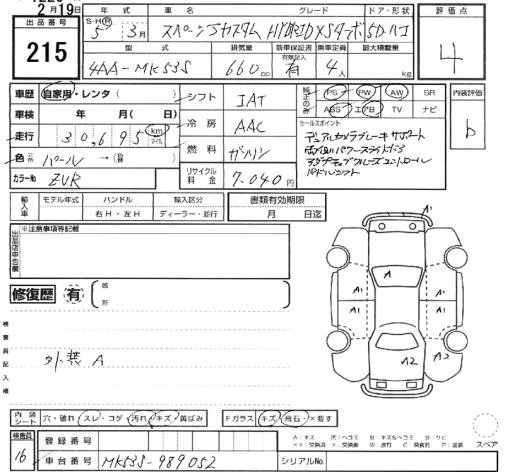 2月19日
出品番号 215
年式 S・H・R 5年 3月
車名 スペーシアカスタム
グレード HYBRID XSターボ
ドア・形状 5Dハコ
評価点 4
型式 4AA-MK53S
排気量 660cc
新車保証書 有無記入 有
乗車定員 4人
最大積載量 kg
車歴 自家用・レンタ( )
車検 年 月( 日)
走行 30,695 km マイル
色 パール →( )
カラーNo ZVR
シフト IAT
冷房 AAC
燃料 ガソリン
リサイクル料金 7,040円
純正のみ PS PW AW SR
ABS エアB TV ナビ
内装評価 b
セールスポイント
デュアルカメラブレーキサポート
両側パワースライドドア
アダプティブクルーズコントロール
パドルシフト
輸入車 モデル年式 ハンドル 右H・左H 輸入区分 ディーラー・並行
書類有効期限 月 日迄
出品店申告欄 ※注意事項等記載
修復歴 有 箇所
検査員記入欄
外装 A
A1
A1 A1 A1
A2 A2
内装シート 穴・破れ スレ・コゲ 汚れ・キズ・黄ばみ
Fガラス キズ 飛石・×要す
スペア
検査員 16
登録番号
車台番号 MK53S-989052
シリアルNo.